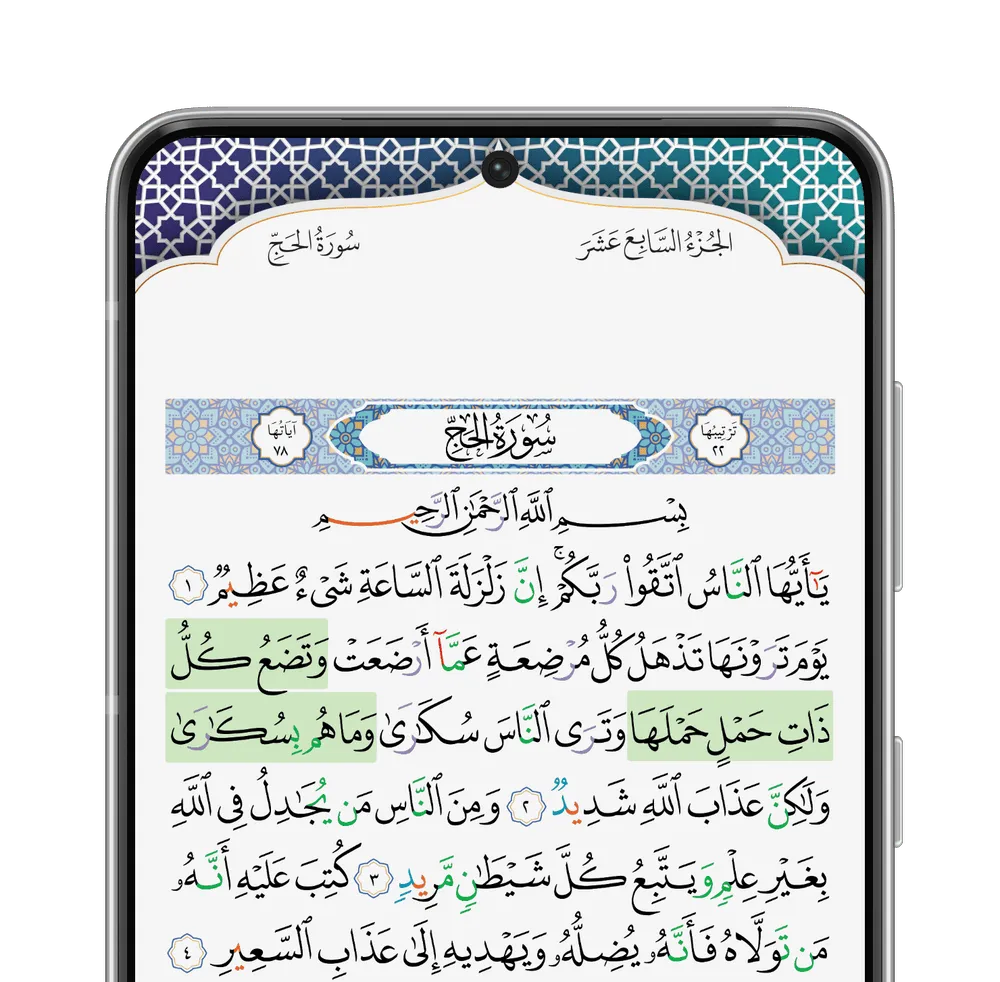 الجُزْءُ السَّابِعَ عَشَرَ
سُورَةُ الحَجِّ
تَرْتِيبُهَا ٢٢
سُورَةُ الحَجِّ
آيَاتُهَا ٧٨
بِسْمِ ٱللَّهِ ٱلرَّحْمَٰنِ ٱلرَّحِيمِ
يَٰٓأَيُّهَا ٱلنَّاسُ ٱتَّقُوا۟ رَبَّكُمْ ۚ إِنَّ زَلْزَلَةَ ٱلسَّاعَةِ شَىْءٌ عَظِيمٌ ١
يَوْمَ تَرَوْنَهَا تَذْهَلُ كُلُّ مُرْضِعَةٍ عَمَّآ أَرْضَعَتْ وَتَضَعُ كُلُّ
ذَاتِ حَمْلٍ حَمْلَهَا وَتَرَى ٱلنَّاسَ سُكَٰرَىٰ وَمَا هُم بِسُكَٰرَىٰ
وَلَٰكِنَّ عَذَابَ ٱللَّهِ شَدِيدٌ ٢ وَمِنَ ٱلنَّاسِ مَن يُجَٰدِلُ فِى ٱللَّهِ
بِغَيْرِ عِلْمٍ وَيَتَّبِعُ كُلَّ شَيْطَٰنٍ مَّرِيدٍ ٣ كُتِبَ عَلَيْهِ أَنَّهُۥ
مَن تَوَلَّاهُ فَأَنَّهُۥ يُضِلُّهُۥ وَيَهْدِيهِ إِلَىٰ عَذَابِ ٱلسَّعِيرِ ٤